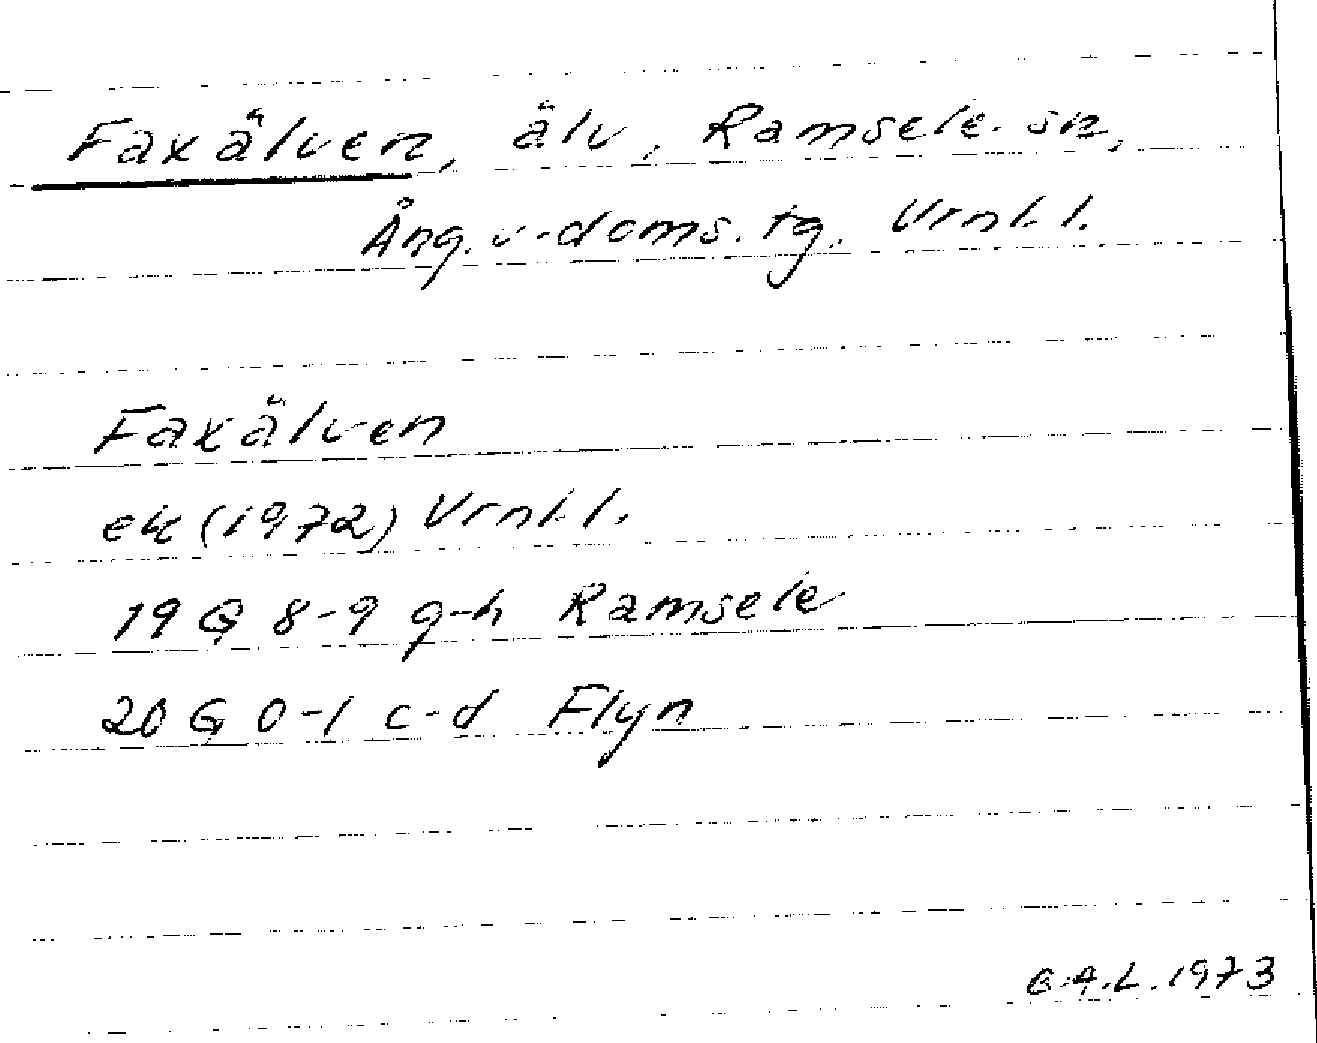 Faxälven, älv, Ramsele sn,
Ång. v. doms. tg. Vrnl. l.
Faxälven
ek (1972) Vrnl. l.
19 G 8-9 g-h Ramsele
20 G 0-1 c-d Flyn
C.A.L. 1973